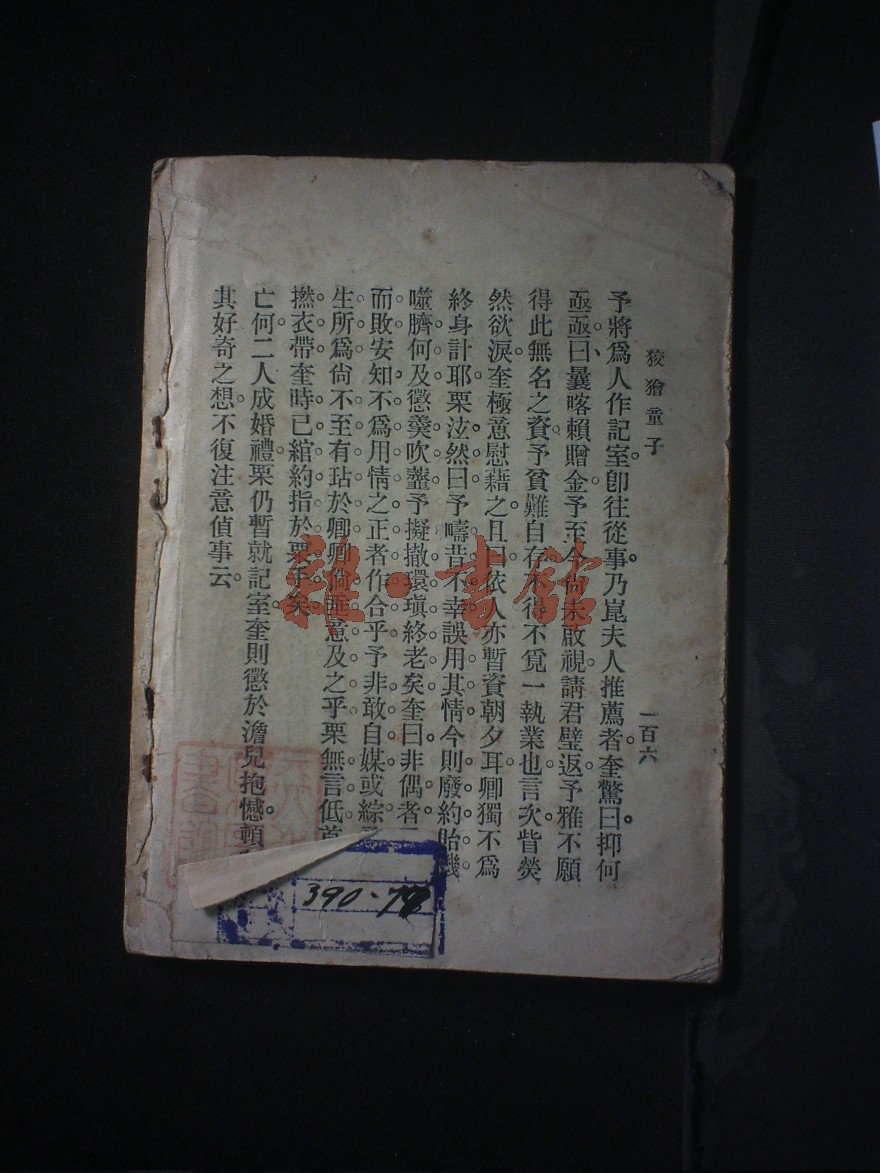 狡獪童子
一百六
予將爲人作記室。卽往從事。乃崑夫人推薦者。奎驚曰。抑何
亟亟。曰。曩喀賴贈金。予至今尙未啟視。請君璧返。予雅不願
得此無名之資。予貧難自存。不得不覓一執業也。言次。眥熒
然欲淚。奎極意慰藉之。且曰。依人亦暫資朝夕耳。卿獨不爲
終身計耶。栗泫然曰。予疇昔不幸誤用其情。今則廢約胎譏。
噬臍何及。懲羹吹虀。予擬撤環瑱終老矣。奎曰。非偶者
而敗。安知不爲用情之正者作合乎。予非敢自媒。或綜
生所爲。尙不至有玷於卿。卿倘垂意及之乎。栗無言。低首
撚衣帶。奎時已綰約指於栗手矣。
亡何。二人成婚禮。栗仍暫就記室。奎則懲於澹兒抱憾。頓
其好奇之想。不復注意偵事云。
雜·書館
390-77